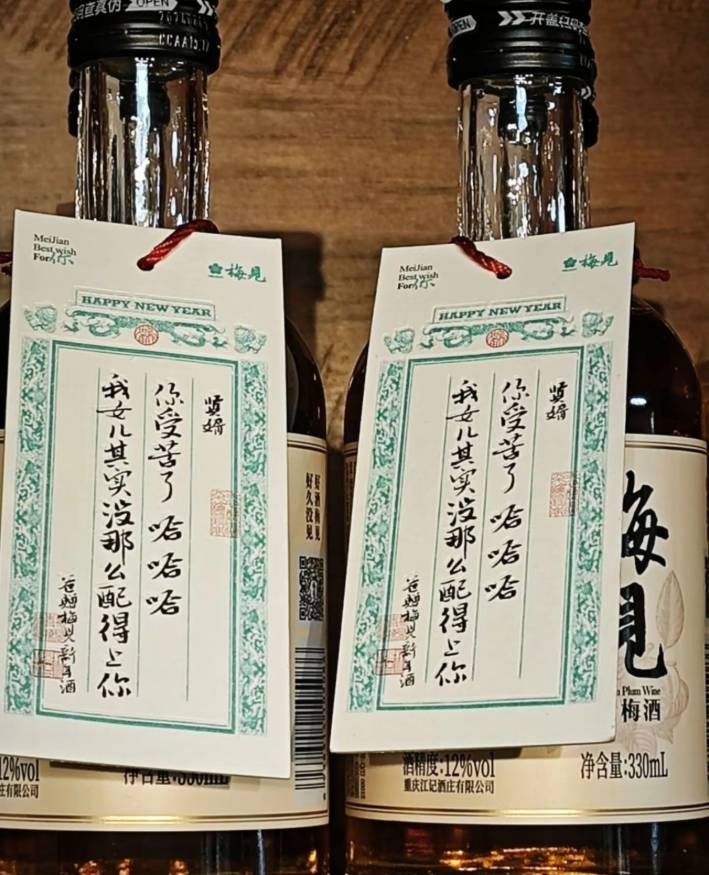 OPEN
MeiJian
Best wish
For你
梅見
HAPPY NEW YEAR
贤婿
你受苦了 哈哈哈
我女儿其实没那么配得上你
爸妈梅见新年酒
好酒梅见
好久没见
12%vol
净含量:330mL
庄有限公司
OPEN
开盖扫码
MeiJian
Best wish
For你
梅見
HAPPY NEW YEAR
贤婿
你受苦了 哈哈哈
我女儿其实没那么配得上你
爸妈梅见新年酒
梅見
Plum Wine
梅酒
酒精度:12%vol
净含量:330mL
重庆江记酒庄有限公司